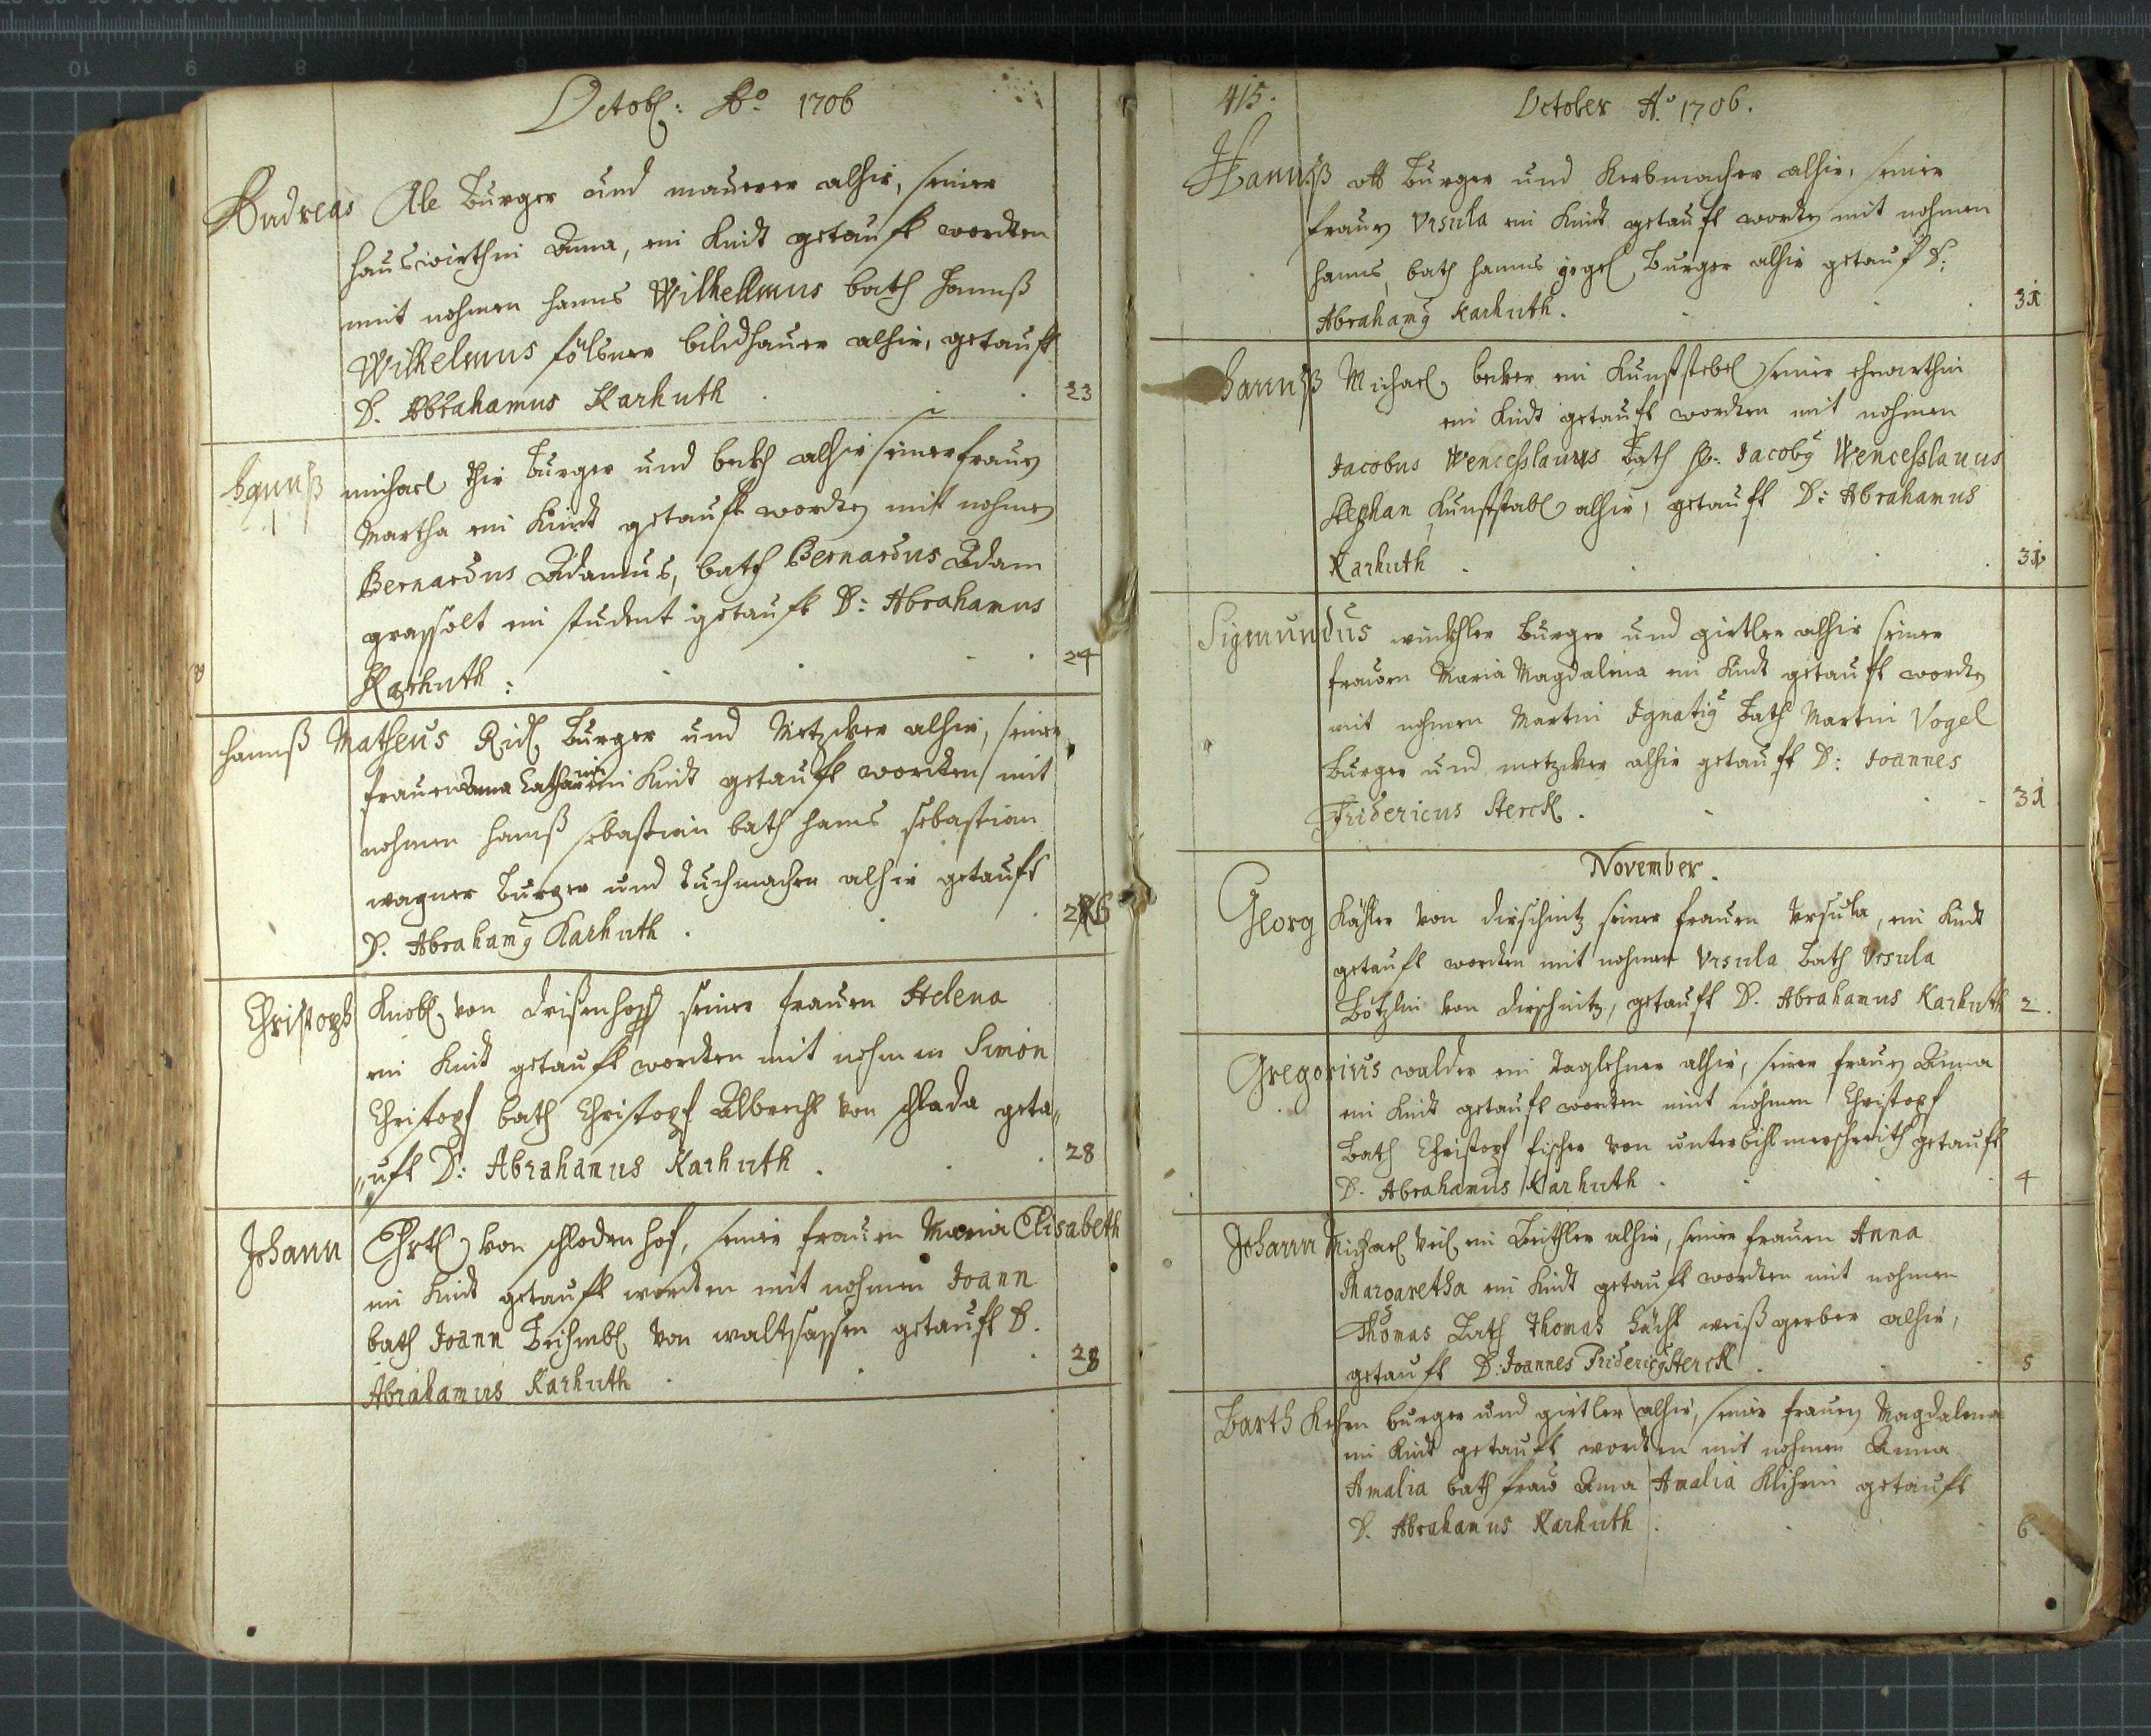 Octob: Ao 1706
Andreas Ale Burger und maurer alhir, seiner
hauswirthin Anna, ein Kindt getauft wordten
mit nohmen hanns Wilhellmus bath hannß
Wilhelmus bildhauer alhir, getauft
D. Abrahamus Karhuth 23
hannß michael Burger und beckh alhir seiner frauen
Martha ein Kindt getauft worden mit nohmen
Bernardus Adamus, bath Bernardus Adam
grassolt ein student getauft D: Abrahamus
Karhuth: 24
hannß Matheus Ridl Burger und Metzcker alhir, seiner
frauen Anna Catharina ein Kindt getauft wordten mit
nohmen hannß sebastian bath hanns sebastian
wagner Burger und Tuchmacher alhir getauft
D. Abrahamus Karhuth. 26
Christoph Knobl von seiner frauen Helena
ein Kindt getauft wordten mit nohmen Simon
Christoph bath Christoph Albrecht von schlada geta„
„uft D: Abrahamus Karhuth. 28
Johann Ertl von schlodenhof, seiner frauen Maria Elisabeth
ein Kindt getauft wordten mit nohmen Joann
bath Joann von waltsassen getauft D.
Abrahamus Karhuth 28
415.
October Ao 1706.
Hannß ott Burger und Korbmacher alhir, seiner
frauen Ursula ein Kindt getauft worden mit nohmen
hanns, bath hanns Burger alhir getauf D:
Abrahamus Karhuth. 31
hannß Michael becker ein Kunststebel seiner ehewirthin
ein Kindt getauft wordten mit nohmen
Jacobus Wencesslauus Bath H: Jacobus Wencesslauus
Stephan Kunststabl alhir, getauft D: Abrahamus
Karhuth. 31
Sigmundus winckhler Burger und girtler alhir seiner
frauen Maria Magdalena ein Kindt getauft worden
mit nohmen Martin Ignatius Bath Martin Vogel
Burger und metzcker alhir getauft D: Joannes
Fridericus Sterck. 31
November.
Georg Kähler von dirschnitz seiner frauen Ursula, ein Kindt
getauft wordten mit nohmen Ursula Bath Ursula
von dirschnitz, getauft D. Abrahamus Karhuth 2.
Gregorius walder ein Taglehner alhir, seiner frauen Anna
ein Kindt getauft wordten mit nohmen Christoph
Bath Christoph fischer von getauft
D. Abrahamus Karhuth. 4
Johann Michael Veil ein alhir, seiner frauen Anna
Margaretha ein Kindt getauft wordten mit nohmen
Thomas Bath Thomas weißgerber alhir,
getauft D: Joannes Fridericus Sterck 5
Barth Kehrn burger und girtler alhir, seiner frauen Magdalena
ein Kindt getauft wordten mit nohmen Anna
Amalia bath frau Anna Amalia getauft
D. Abrahamus Karhuth. 6